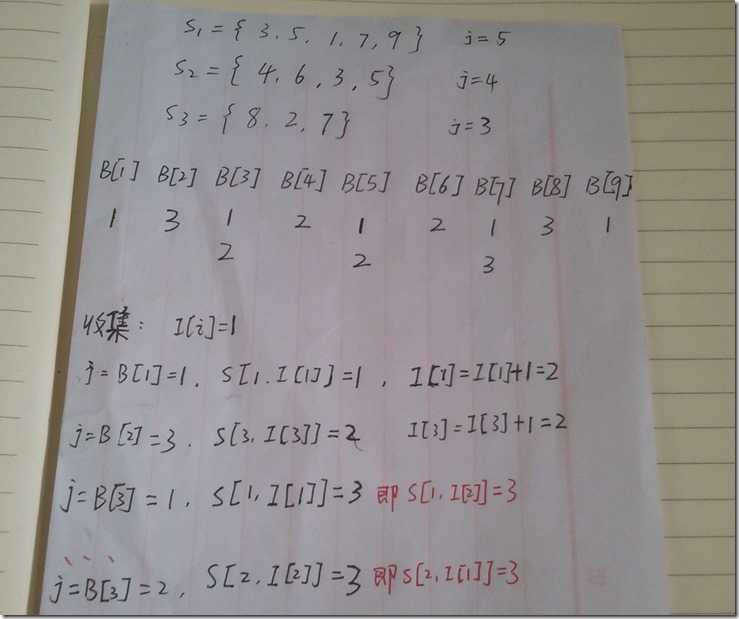 S₁ = { 3. 5. 1. 7. 9 } j=5
S₂ = { 4, 6, 3, 5} j=4
S₃ = { 8. 2. 7} j=3
B[1] B[2] B[3] B[4] B[5] B[6] B[7] B[8] B[9]
1 3 1 2 1 2 1 3 1
2 2 3
收集: I[i]=1
j=B[1]=1. S[1. I[1]]=1, I[1]=I[1]+1=2
j=B[2]=3. S[3, I[3]]=2 I[3]=I[3]+1=2
j=B[3]=1, S[1, I[1]]=3 即 S[1, I[2]]=3
j=B[3]=2, S[2, I[2]]=3 即 S[2, I[1]]=3